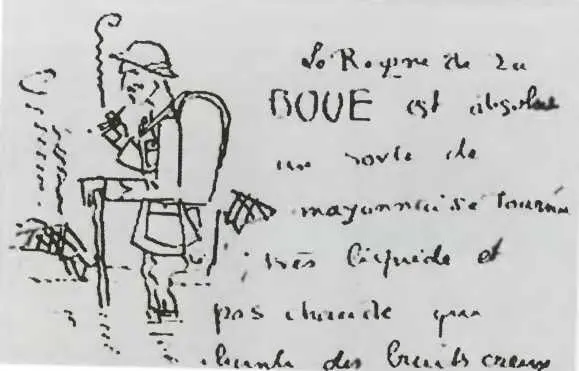 Le Royne de La
BOUE est absolue
une sorte de
mayonnaise tournée
très liquide et
pas chaude qui
chante des bruits creux